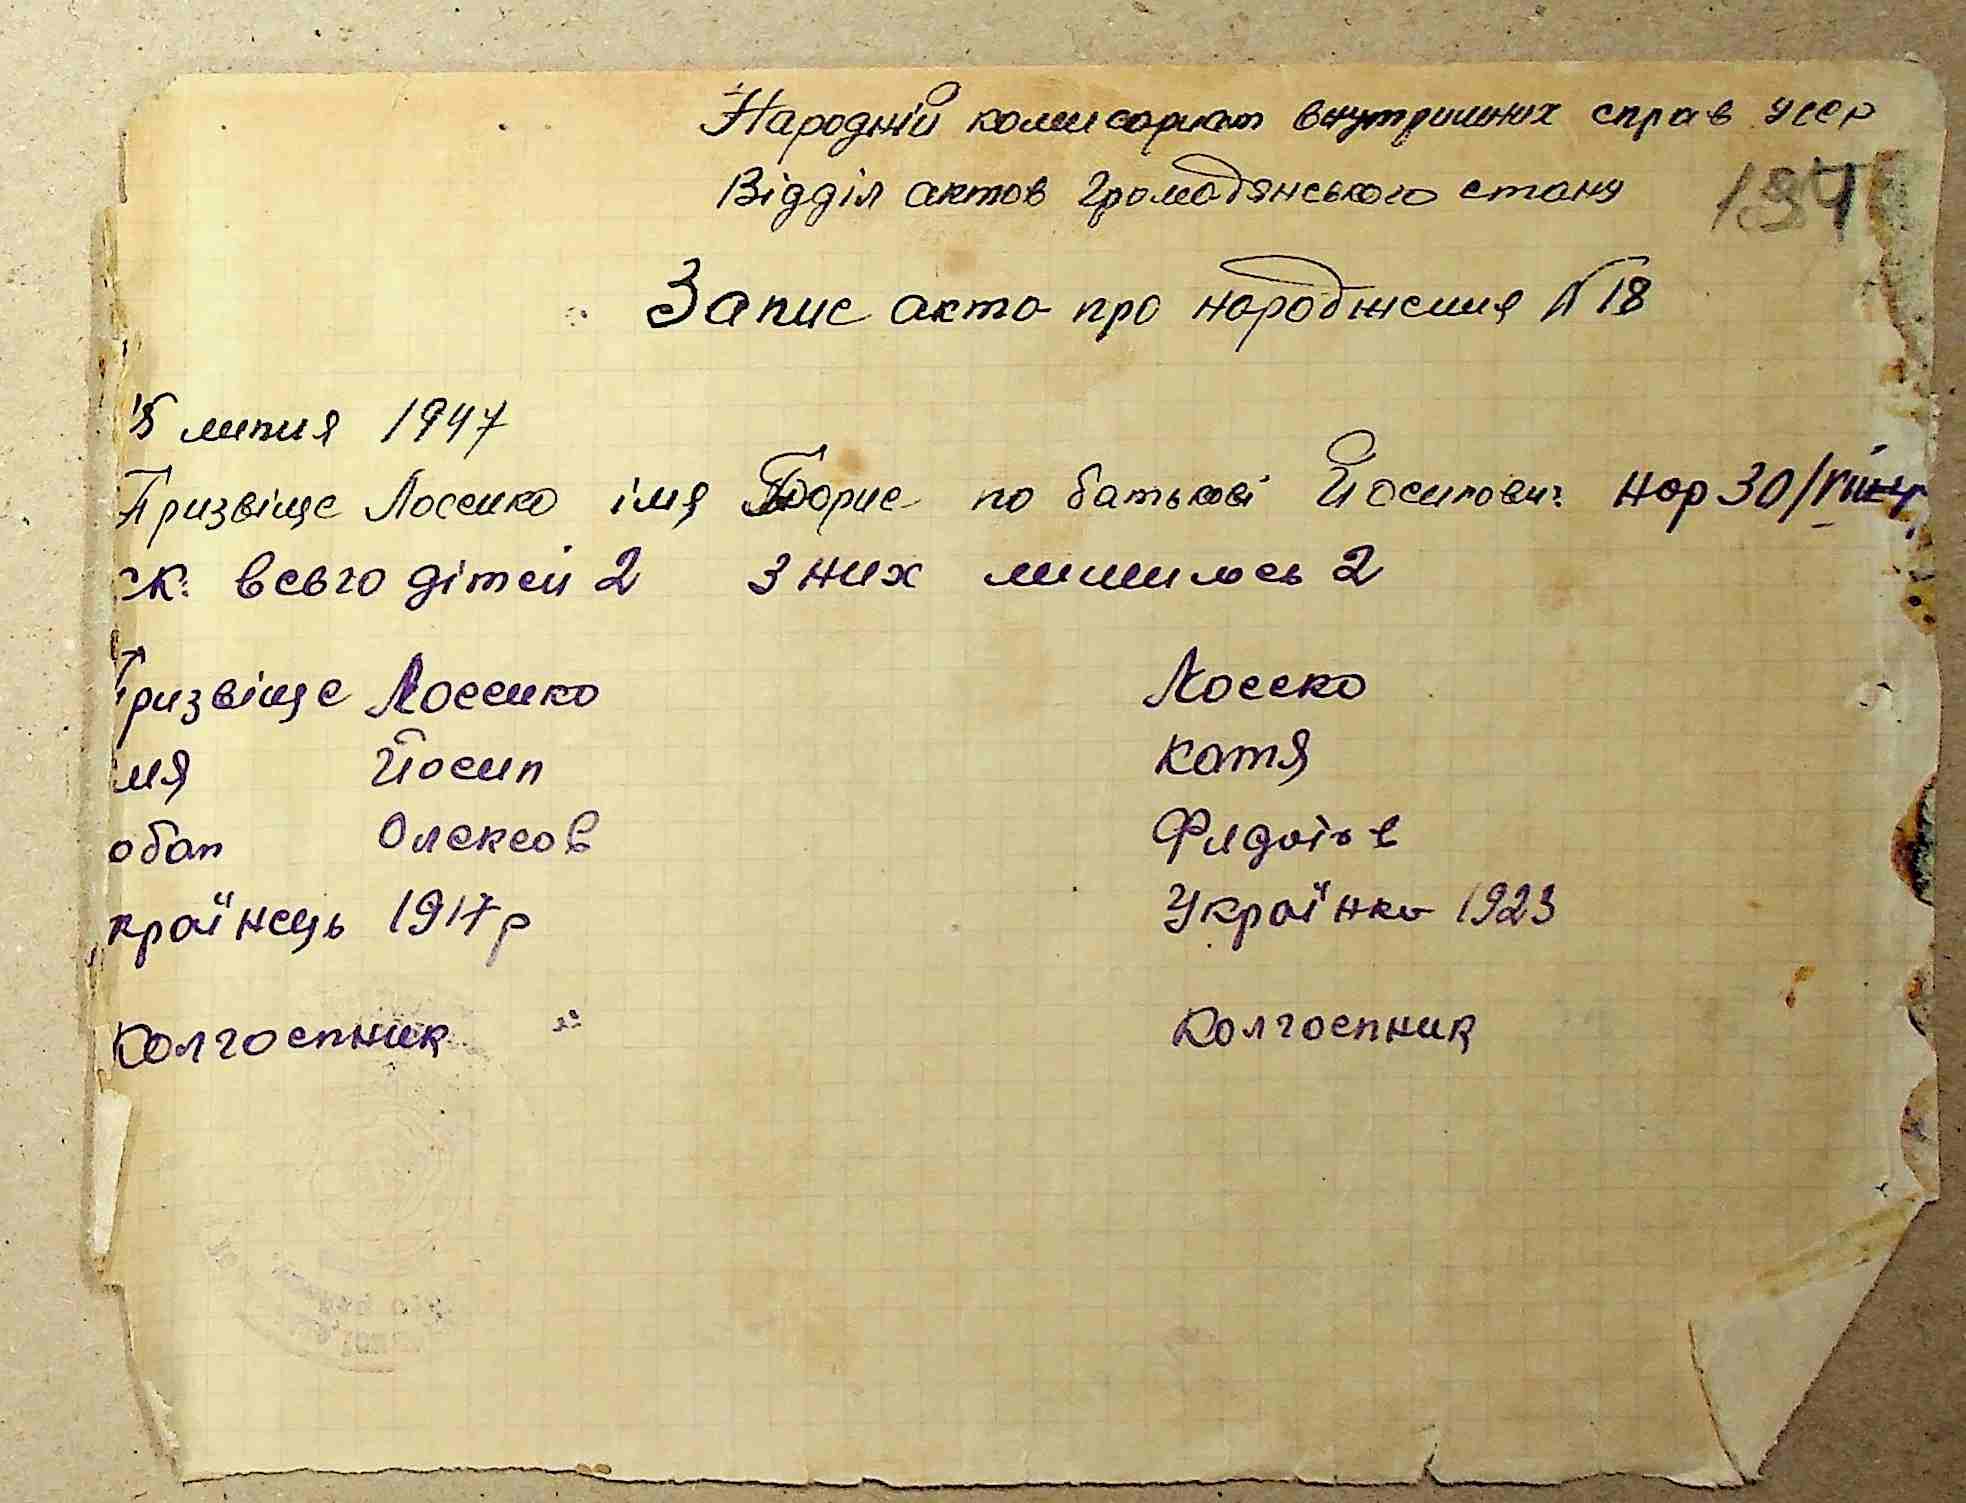 Народній комисариат внутришних справ УССР
Відділ актов громадянського стану
194
Запис акта про народження N 18
15 липня 1947
Призвіще Лосенко імя Борис по батькові Йосипович нар 30/
ж: всього дітей 2 з них лишилось 2
ризвіще Лосенко Лосеко
мя Йосип Катя
обат Олексов
країнець 1917р Українка 1923
Колгоспник Колгоспник